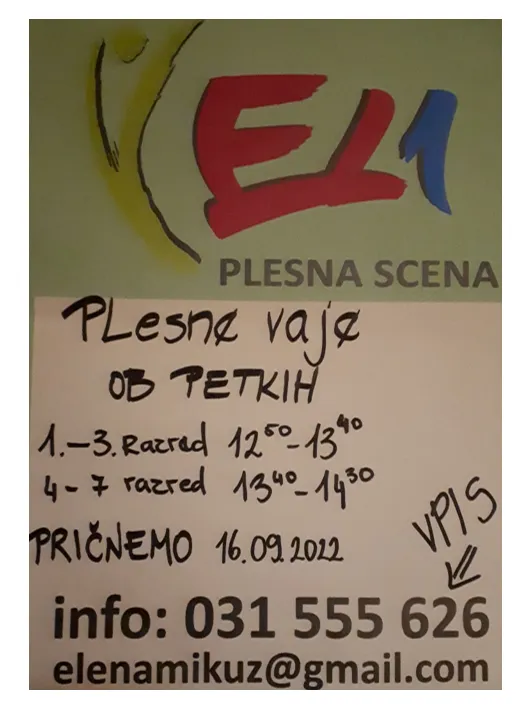 EL1
PLESNA SCENA
PLesne vaje
OB PETKIH
1.-3. Razred 12⁵⁰-13⁴⁰
4-7 razred 13⁴⁰-14³⁰
PRIČNEMO 16.09.2022
VPIS
info: 031 555 626
elenamikuz@gmail.com